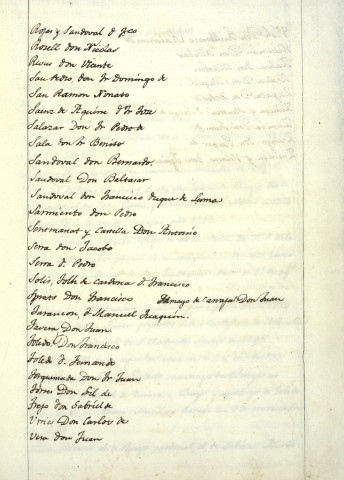 Rojas y Sandoval d. Fco
Rosell don Nicolas
Rivus don Vicente
San Pedro, don Fr Domingo de
San Ramon Nonato
Saenz de Aguirre d. Fr Jose
Salazar Don Fr Pedro de
Sala don Fr Benito
Sandoval don Bernardo.
Sandoval Don Baltasar
Sandoval don Francisco duque de Lerma
Sarmiento don Pedro
Senmanat y Cartella Don Antonio
Serra don Jacobo
Serra d. Pedro
Solis, Folch de Cardona d. Francisco
don Francisco Tamayo de Carvajal Don Juan
Tarancon, d. Manuel Joaquin.
Tavera Don Juan.
Toledo, Don Francisco
Toledo d. Fernando
Torquemada Don Fr Juan
Torres Don Gil de
Trejo don Gabriel de
Urries Don Carlos de
Vera don Juan